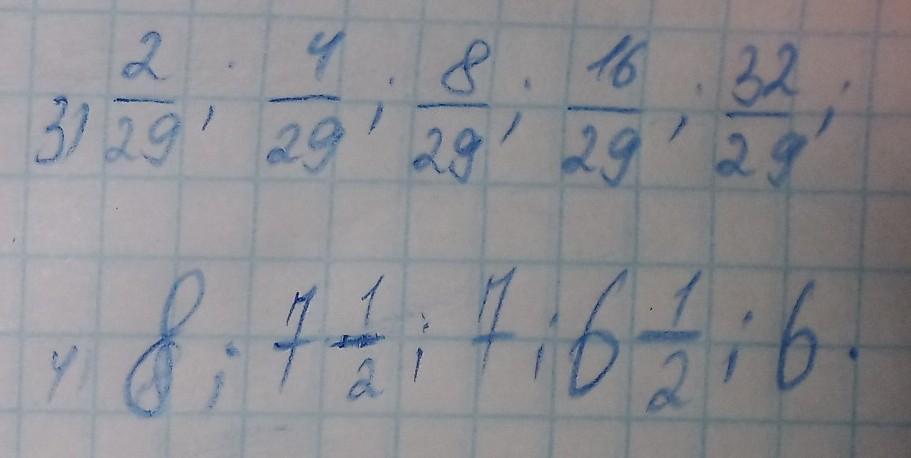 3) 2/29; 4/29; 8/29; 16/29; 32/29;
4) 8; 7 1/2; 7; 6 1/2; 6.